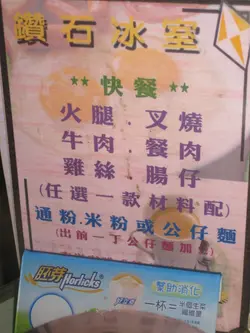 鑽石冰室
** 快餐 **
火腿．叉燒
牛肉．餐肉
雞絲．腸仔
(任選一款材料配)
通粉米粉或公仔麵
(出前一丁公仔麵加
胚芽Horlicks
幫助消化
一杯=